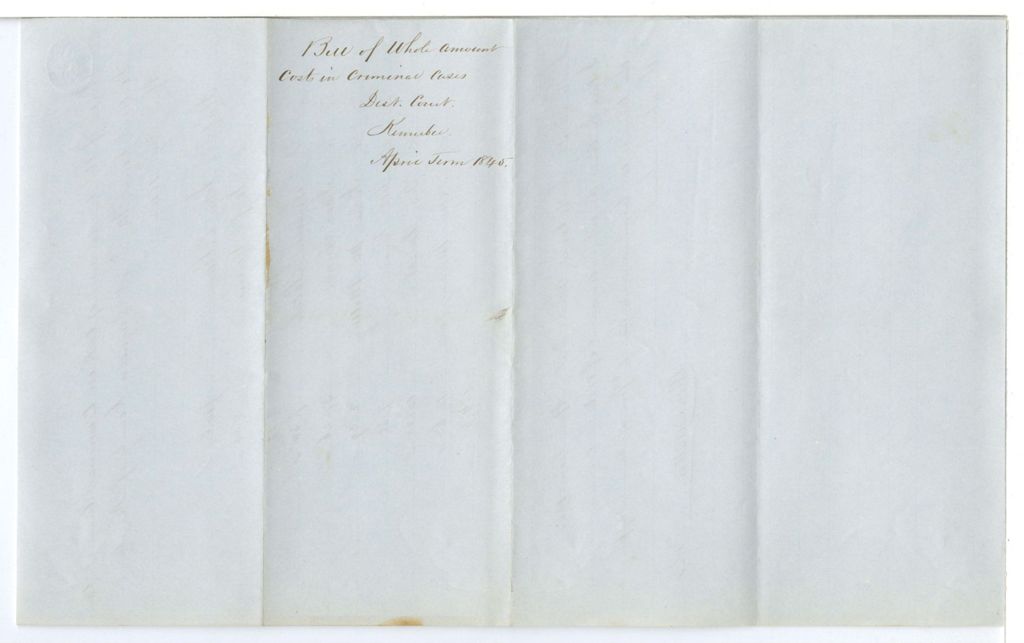 Bill of Whole amount
Cost in Criminal Cases
Dist. Court.
Kennebec.
April Term 1845.